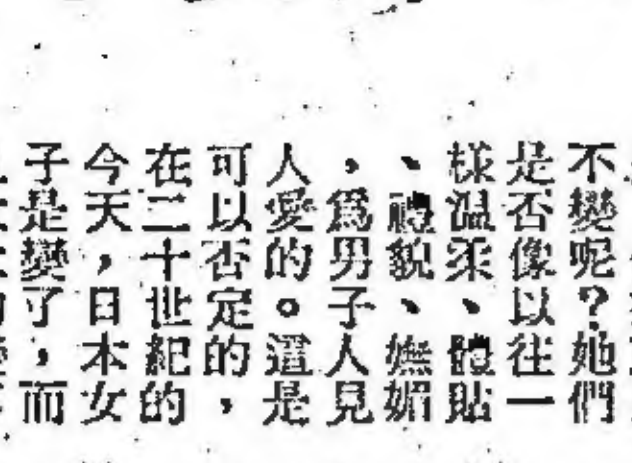 不變呢？她們
是否像以往一
樣溫柔、體貼
、禮貌、嫵媚
，爲男子人見
人愛的。這是
可以否定的，
在二十世紀的
今天，日本女
子是變了，而